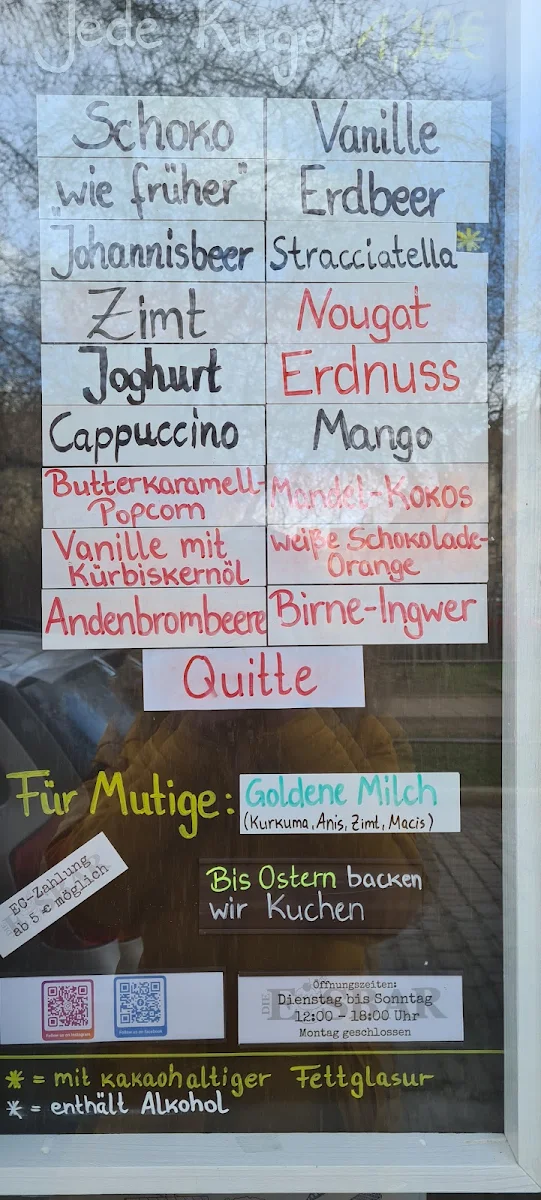 Jede Kugel 1,90€
Schoko
Vanille
"wie früher"
Erdbeer
Johannisbeer
Stracciatella *
Zimt
Nougat
Joghurt
Erdnuss
Cappuccino
Mango
Butterkaramell-
Popcorn
Mandel-Kokos
Vanille mit
Kürbiskernöl
weiße Schokolade-
Orange
Andenbrombeere
Birne-Ingwer
Quitte
Für Mutige:
Goldene Milch
(Kurkuma, Anis, Zimt, Macis)
EC-Zahlung
ab 5 € möglich
Bis Ostern backen
wir Kuchen
Follow us on Instagram
Follow us on facebook
DIE EISBAR
Öffnungszeiten:
Dienstag bis Sonntag
12:00 - 18:00 Uhr
Montag geschlossen
* = mit kakaohaltiger Fettglasur
* = enthält Alkohol